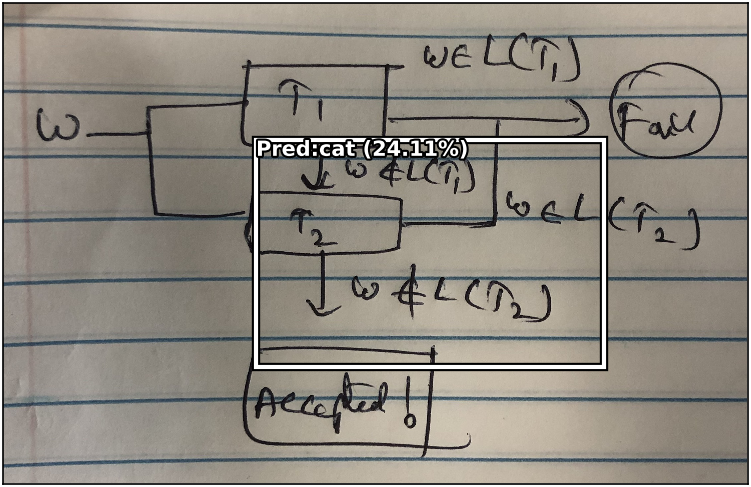 w∈L(T1)
T1
w
Fail
Pred:cat (24.11%)
w∉L(T1)
T2
w∈L(T2)
w∉L(T2)
Accepted!